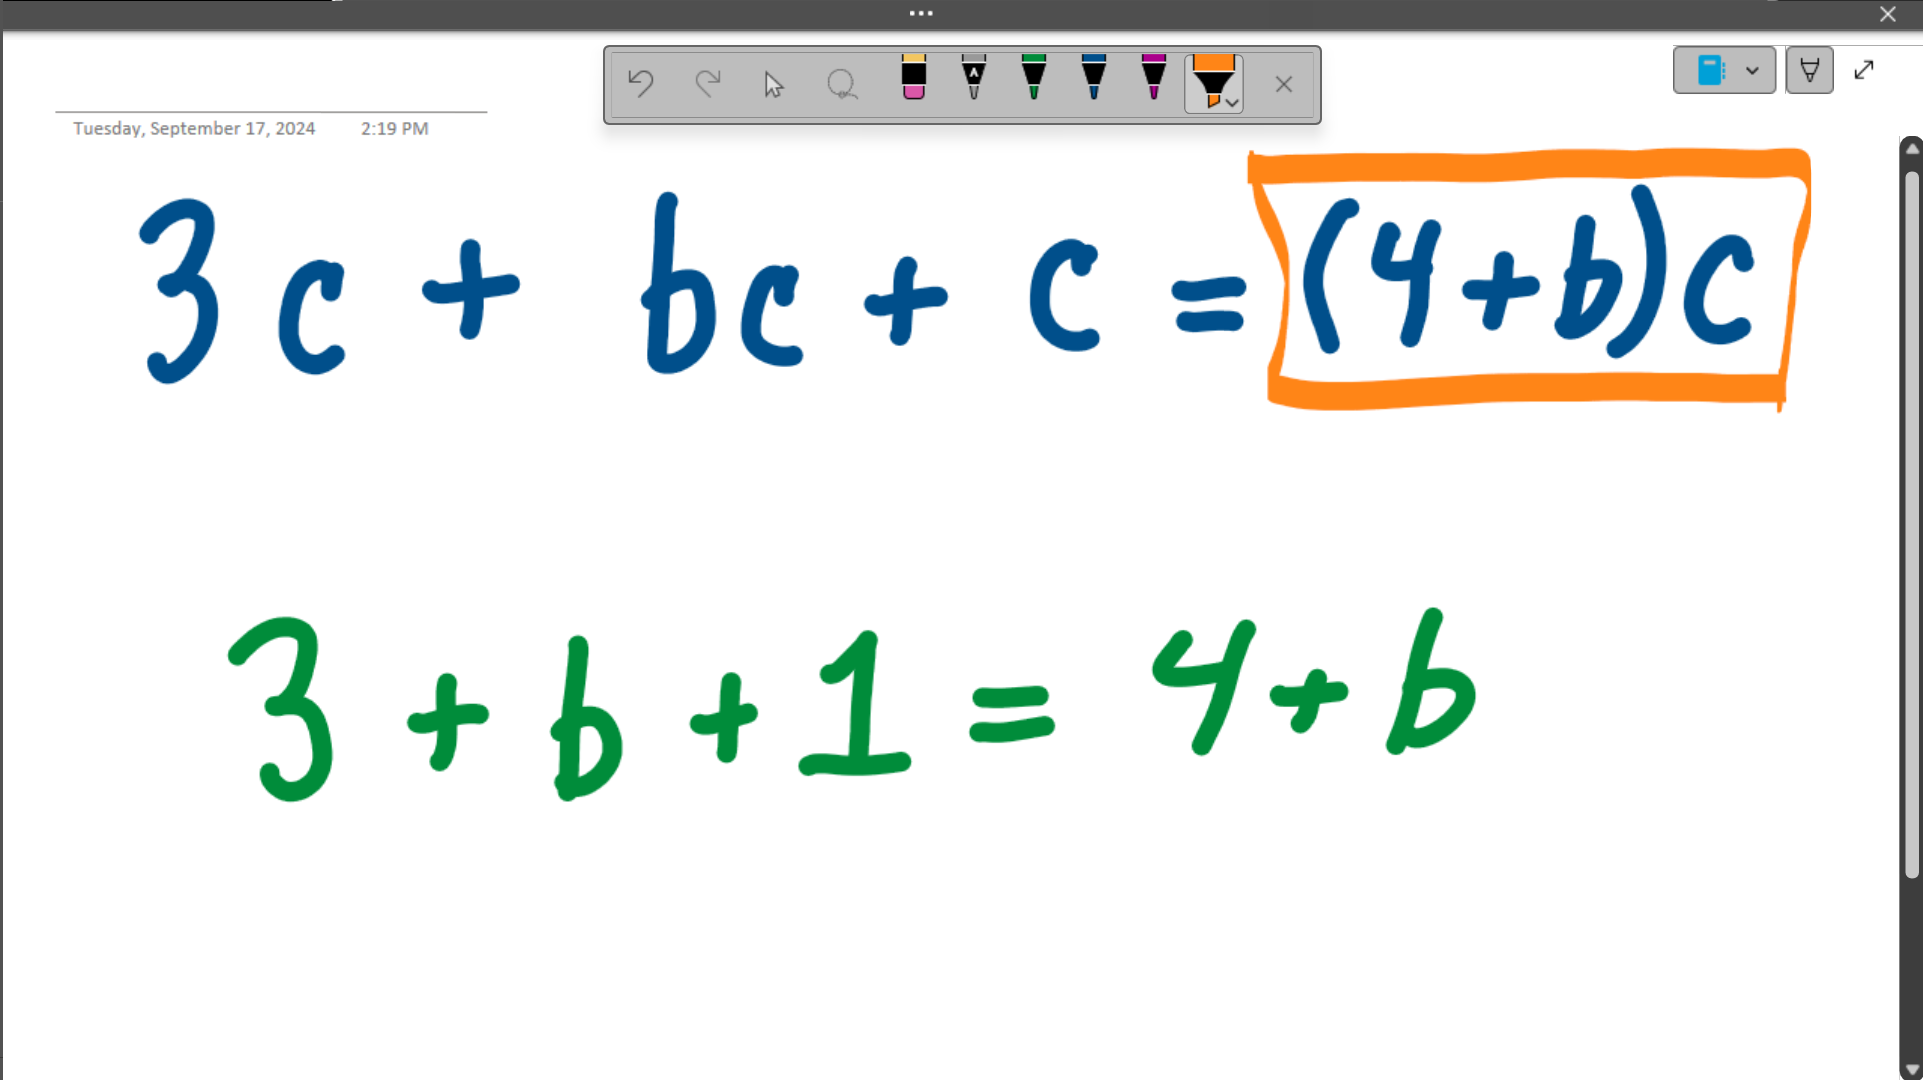 Tuesday, September 17, 2024 2:19 PM
3c + bc + c = (4+b)c
3 + b + 1 = 4 + b